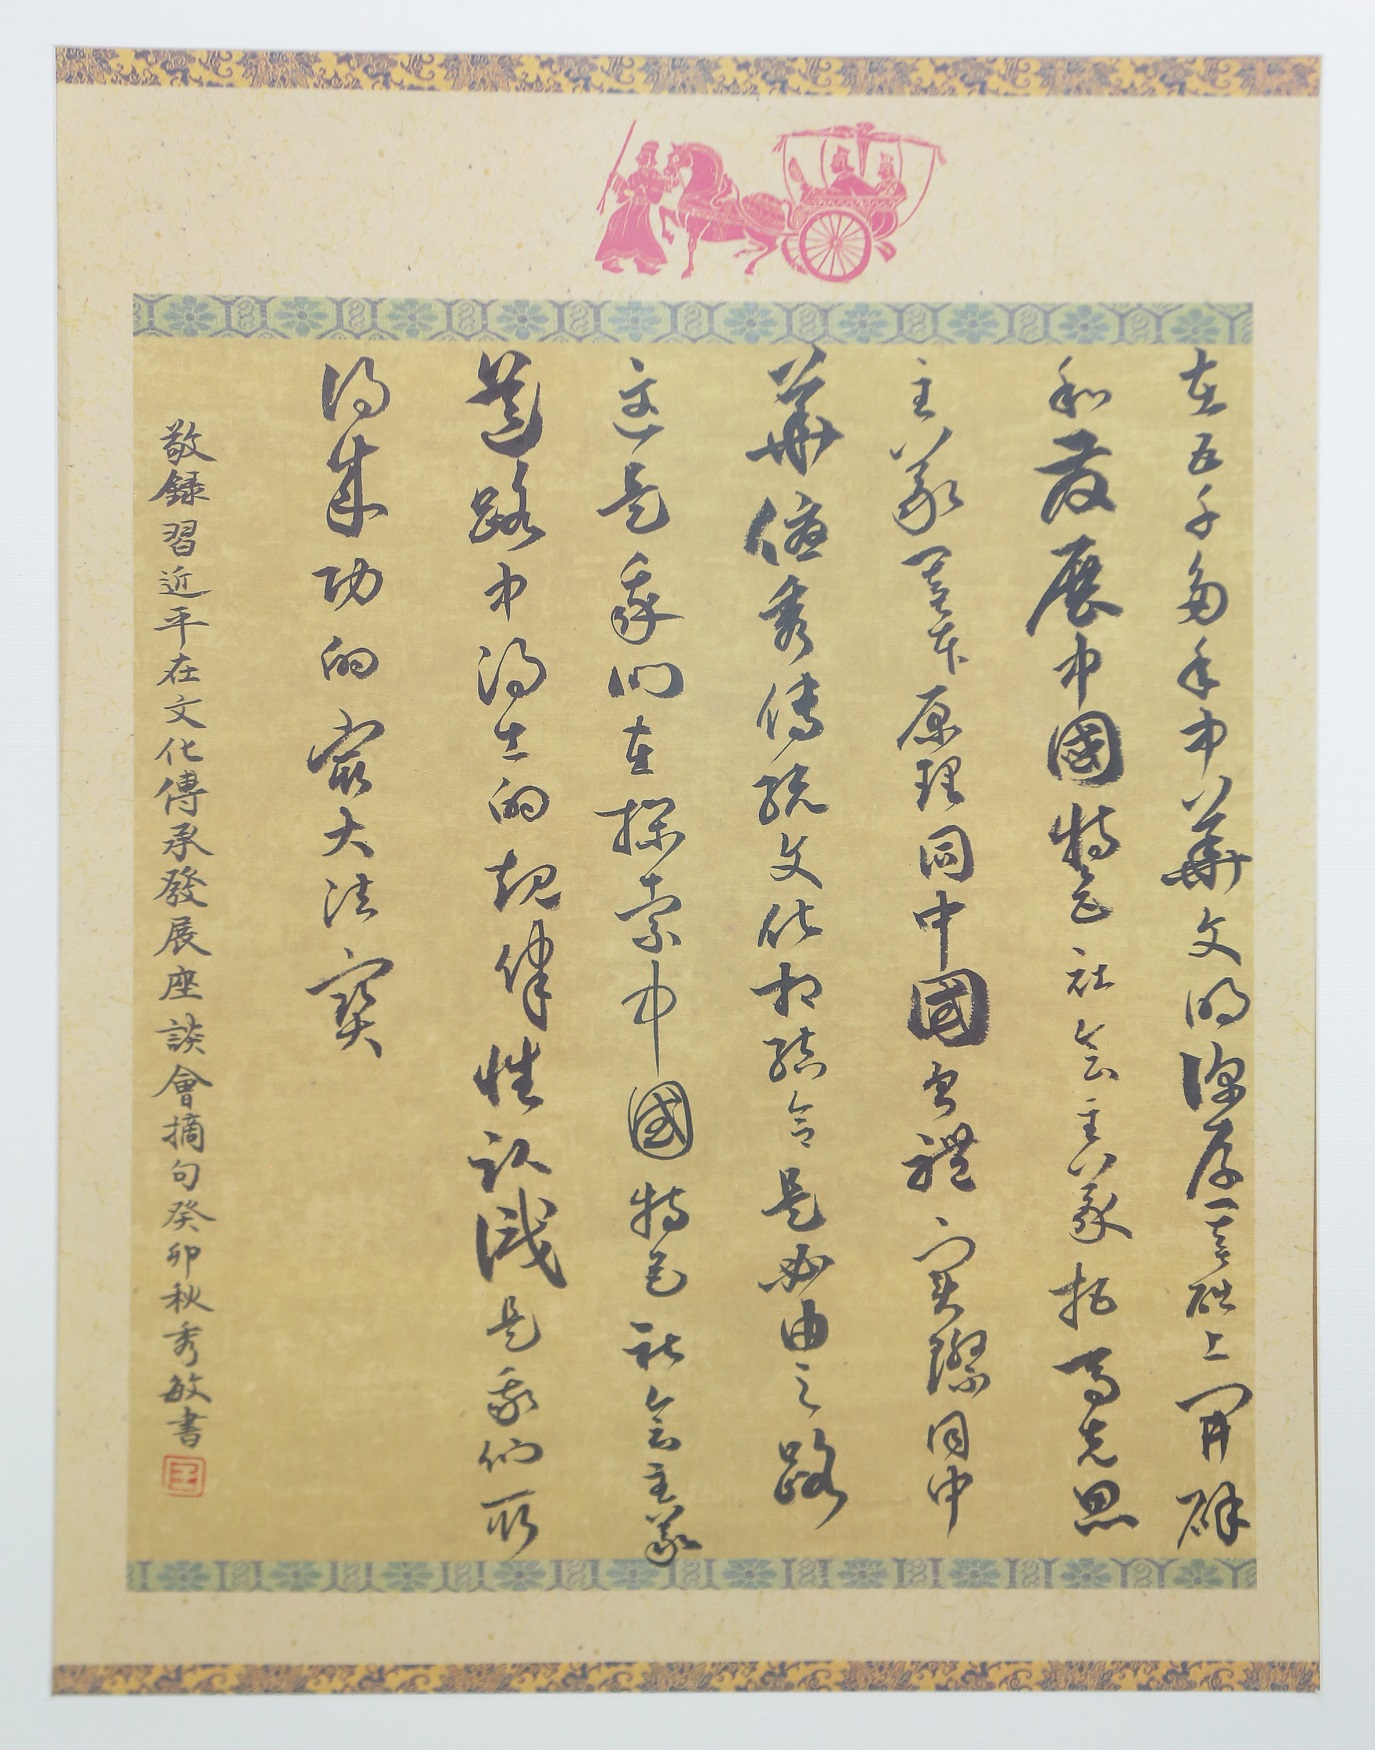 在五千多年中華文明深厚基础上開辟
和發展中國特色社会主義把馬克思
主義基本原理同中國具體實際同中
華優秀傳統文化相結合是必由之路
这是我们在探索中國特色社会主義
道路中得出的規律性認識是我们所
得成功的最大法寶
敬録習近平在文化傳承發展座談會摘句癸卯秋秀敏書
王